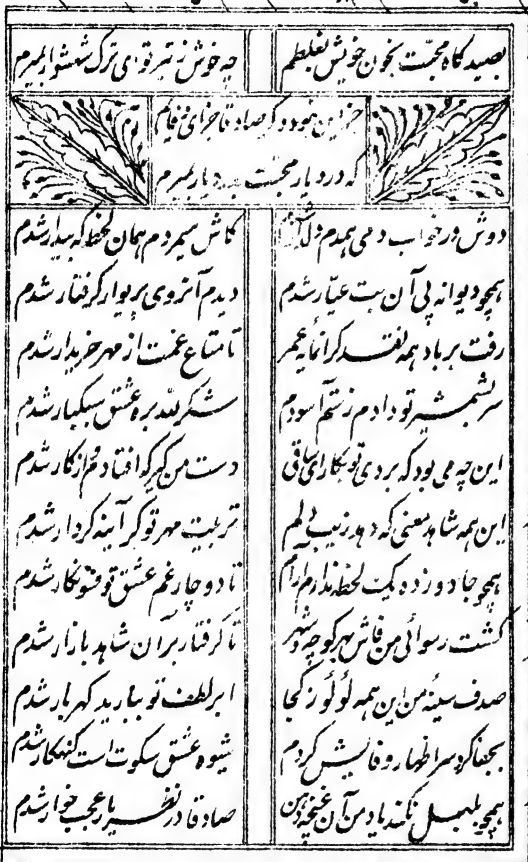 بصیدگاه محبت بخون خویش بغلطم چه خوش ز تیر تو ای ترک شهسوار بمیرم
جز این نبود دگر صادقا جزای وفایم
که در دیار محبت بدر دیار بمیرم
دوش در خواب دمی همدم کاش میمردم همان لحظه که بیدار شدم
همچو دیوانه پی آن بت عیار شدم دیدم آنروی پریوار گرفتار شدم
رفت بر باد همه نقد گرانمایه عمر تا متاع غمت از مهر خریدار شدم
سر بشمشیر تو دادم ز ستم آسودم شکر لله بره عشق سبکبار شدم
این چه می بود که بردی تو بکار ای ساقی دست من گیر که افتادم و از کار شدم
این همه شاهد معنی که دهد زیب دلم تربیت مهر تو کرد آینه کردار شدم
همچو جادو زده یک لحظه ندارم آرام تا دوچار غم عشق تو فسونکار شدم
گشت رسوائی من فاش بهر کوچه و شهر تا گرفتار بر آن شاهد بازار شدم
صدف سینه من این همه لولو ز کجا ابر لطف تو ببارید گهربار شدم
بجفا کرد سر اظهار وفایش کردم شیوه عشق سکوت است گنهکار شدم
همچو بلبل نکند یاد من آن غنچه دهن صادقا در نظر یار عجب خوار شدم